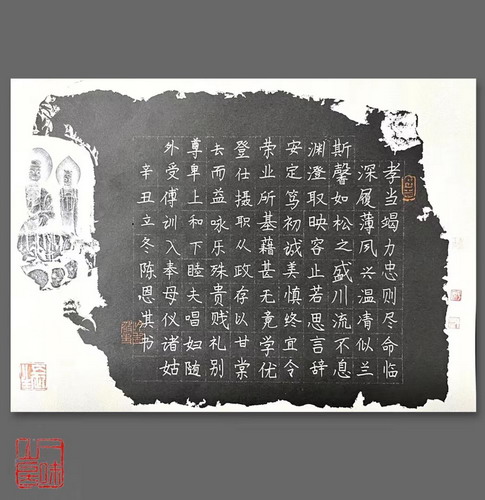 孝当竭力忠则尽命临
深履薄夙兴温清似兰
斯馨如松之盛川流不息
渊澄取映容止若思言辞
安定笃初诚美慎终宜令
荣业所基藉甚无竟学优
登仕摄职从政存以甘棠
去而益咏乐殊贵贱礼别
尊卑上和下睦夫唱妇随
外受傅训入奉母仪诸姑
辛丑立冬陈恩淇书